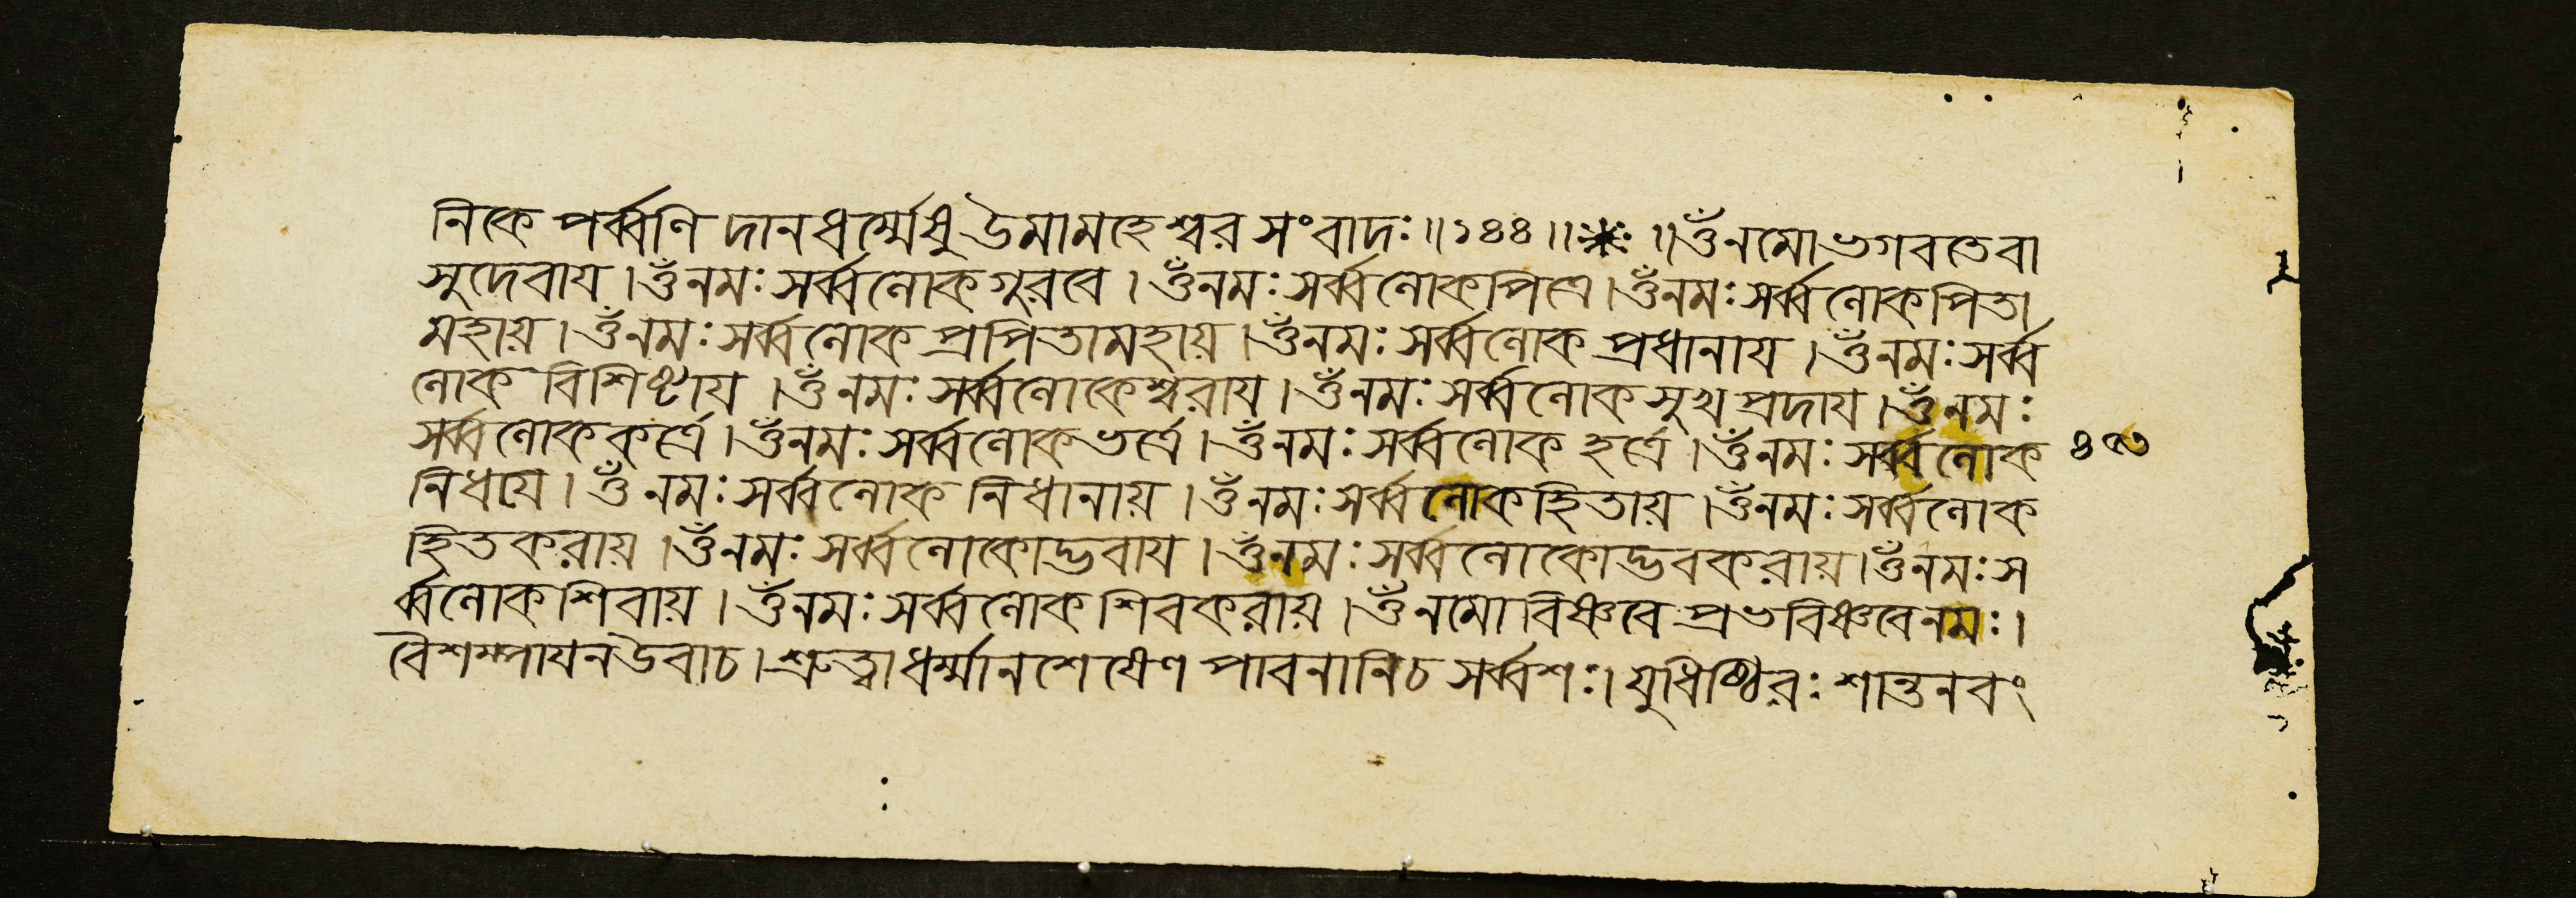 নিকে পর্ব্বণি দানধর্ম্মেষু উমামহেশ্বর সংবাদঃ ॥ ১৪৪ ॥ ※ ॥ ওঁনমোভগবতেবা
সুদেবায় । ওঁনমঃ সর্ব্বলোকগুরবে । ওঁনমঃ সর্ব্বলোকপিত্রে । ওঁনমঃ সর্ব্বলোকপিতা
মহায় । ওঁনমঃ সর্ব্বলোক প্রপিতামহায় । ওঁনমঃ সর্ব্বলোক প্রধানায় । ওঁনমঃ সর্ব্ব
লোক বিশিষ্টায় । ওঁনমঃ সর্ব্বলোকেশ্বরায় । ওঁনমঃ সর্ব্বলোকসুখপ্রদায় । ওঁনমঃ
সর্ব্বলোককর্ত্রে । ওঁনমঃ সর্ব্বলোকভর্ত্রে । ওঁনমঃ সর্ব্বলোক হর্ত্রে । ওঁনমঃ সর্ব্বলোক
নিধায় । ওঁ নমঃ সর্ব্বলোক নিধানায় । ওঁনমঃ সর্ব্বলোকহিতায় । ওঁনমঃ সর্ব্বলোক
হিতকরায় । ওঁনমঃ সর্ব্বলোকোদ্ভবায় । ওঁনমঃ সর্ব্বলোকোদ্ভবকরায় । ওঁনমঃ স
র্ব্বলোকশিবায় । ওঁনমঃ সর্ব্বলোক শিবকরায় । ওঁনমো বিষ্ণবে প্রভবিষ্ণবেনমঃ ।
বৈশম্পায়নউবাচ । শ্রুত্বাধর্ম্মানশেষেণ পাবনানিচ সর্ব্বশঃ । যুধিষ্ঠিরঃ শান্তনবং